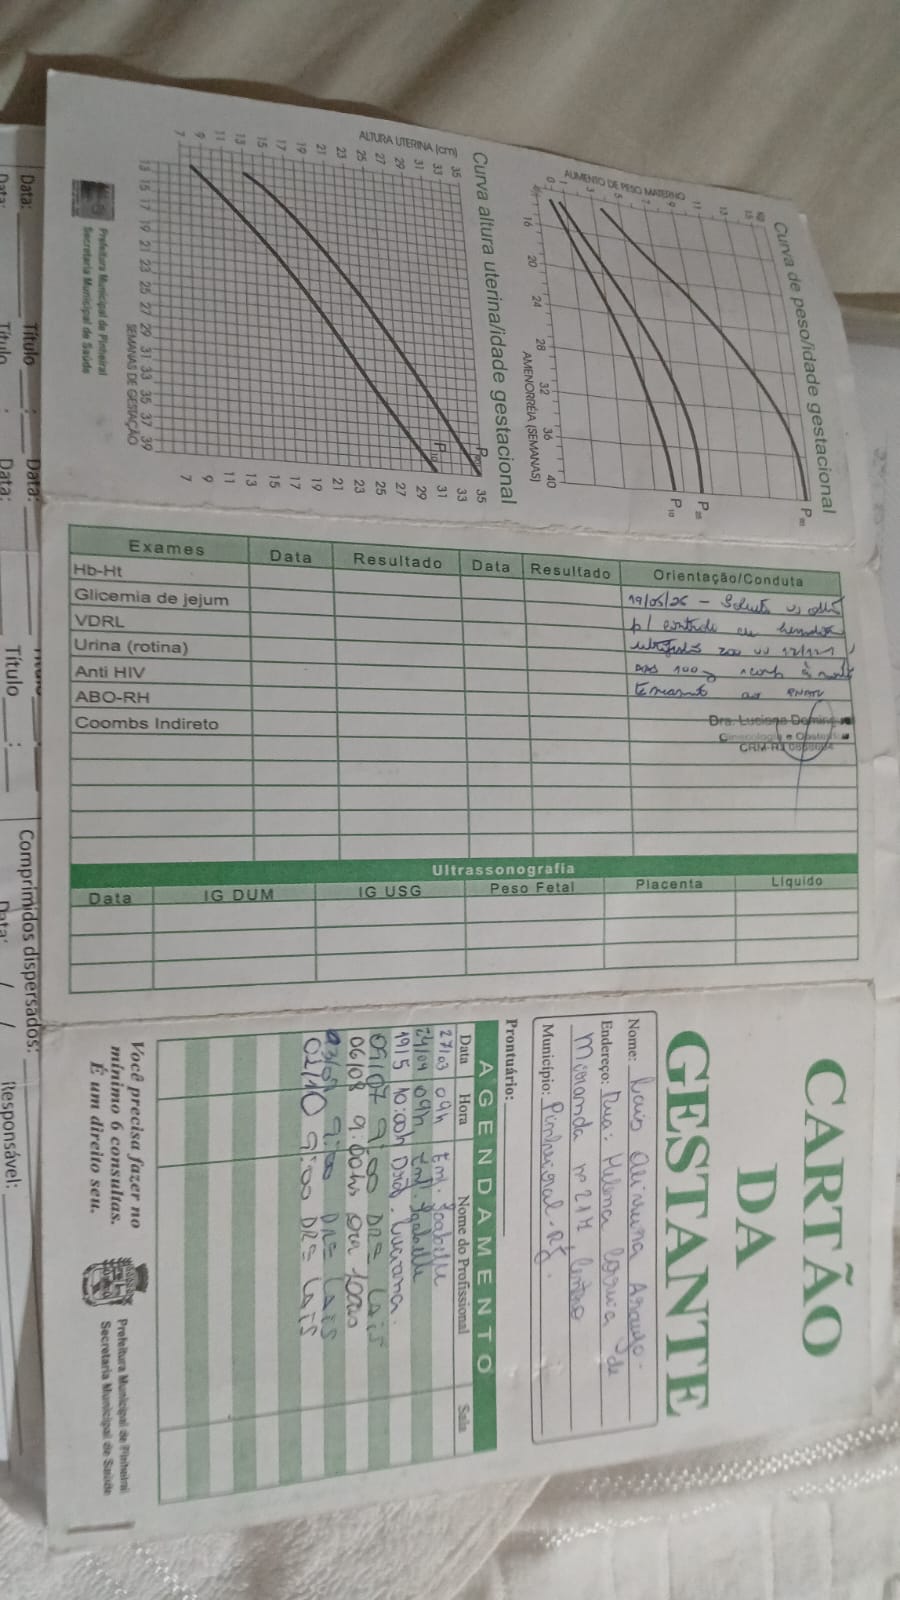 CARTÃO
DA
GESTANTE
Nome: Araujo.
Endereço: Rua: Helena Correia de
Miranda nº 214, Centro
Município: Pinheiral-RJ.
Prontuário:
AGENDAMENTO
Data Hora Nome do Profissional Sala
27/03 09h Enf. Isabelle
24/04 09h Enf. Isabelle
19/5 10:00h Drª. Luciana.
09/07 9:00 DRª Laís
06/08 9:00hs Dra Laís
03/09 9:00 DRª Laís
02/10 9:00 DRª Laís
Você precisa fazer no
mínimo 6 consultas.
É um direito seu.
Prefeitura Municipal de Pinheiral
Secretaria Municipal de Saúde
Exames Data Resultado Data Resultado Orientação/Conduta
Hb-Ht
Glicemia de jejum
VDRL
Urina (rotina)
Anti HIV
ABO-RH
Coombs Indireto
p/
200 12/12h
AAS 100
Dra. Luciana
Ginecologia e Obstetrícia
CRM-RJ
Ultrassonografia
Data IG DUM IG USG Peso Fetal Placenta Líquido
Curva de peso/idade gestacional
AUMENTO DE PESO MATERNO
0 1 3 5 7 9 11 13 15 kg
16 20 24 28 32 36 40
AMENORRÉIA (SEMANAS)
P
P 25
P 10
Curva altura uterina/idade gestacional
ALTURA UTERINA (cm)
35
33
31
29
27
25
23
21
19
17
15
13
11
9
7
13 15 17 19 21 23 25 27 29 31 33 35 37 39
SEMANAS DE GESTAÇÃO
P 90
P 10
35
33
31
29
27
25
23
21
19
17
15
13
11
9
7
Prefeitura Municipal de Pinheiral
Secretaria Municipal de Saúde
Data: Título : Data: Título :
Comprimidos dispersados:
Data: Título : Data: Data: / /
Responsável: